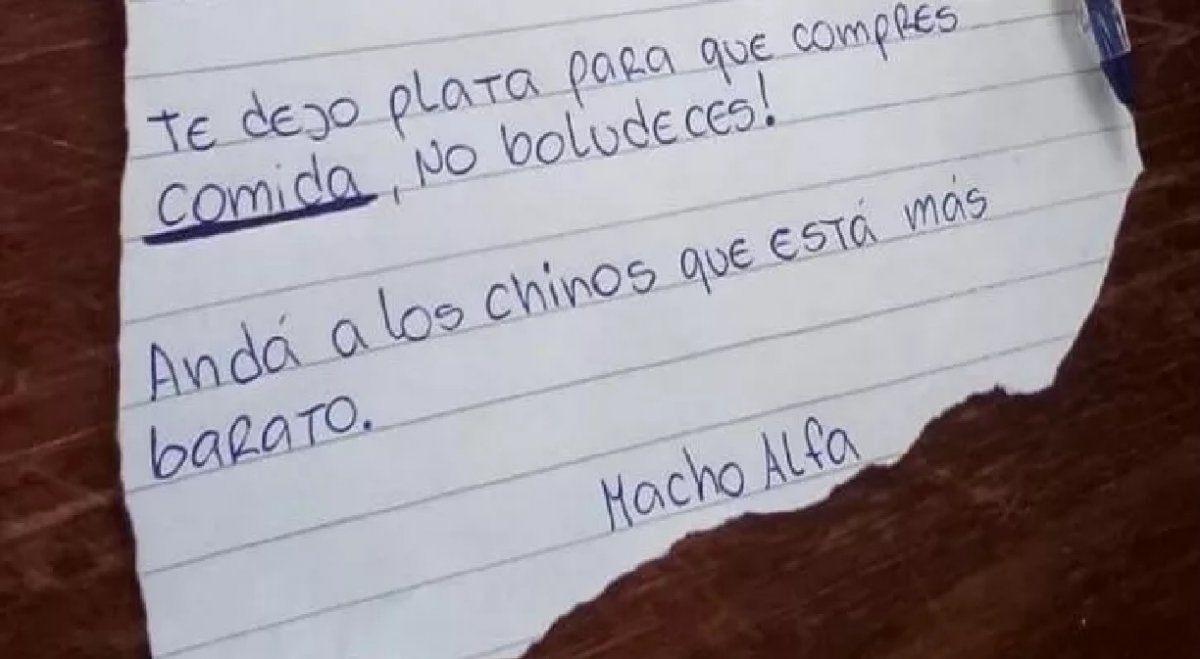 Te dejo plata para que compres
comida, No boludeces!
Andá a los chinos que está más
barato.
Macho Alfa